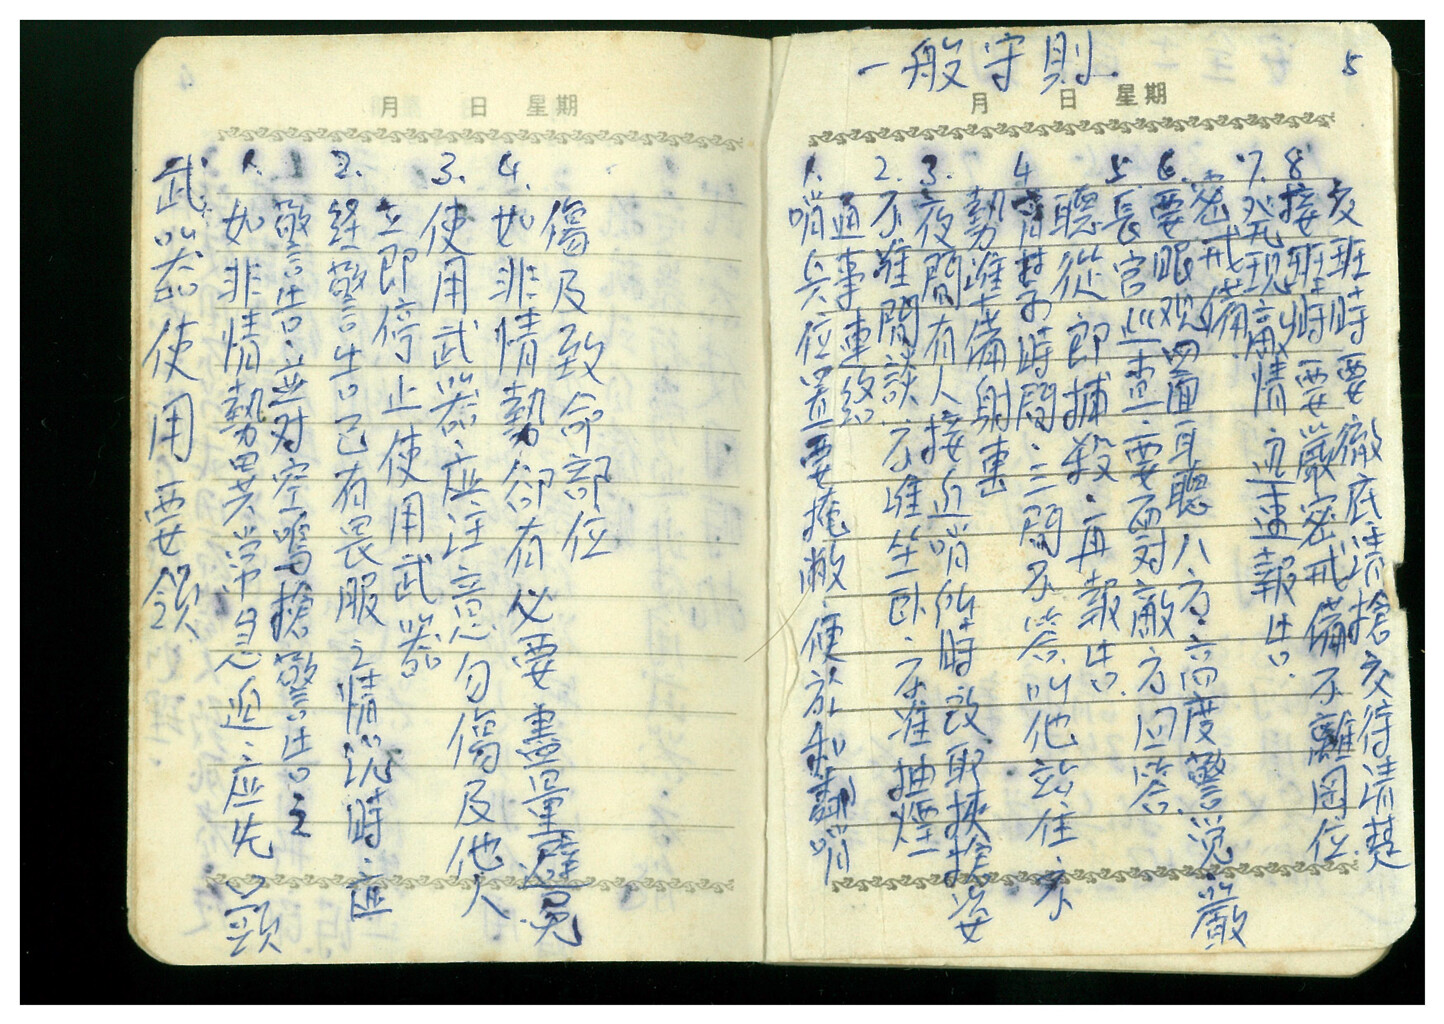 月 日 星期
武器使用要領.
1. 如非情勢異常急迫.应先口頭
警告.並对空鳴槍警告之
2. 経警告已有畏服之情況時.应
立即停止使用武器
3. 使用武器应注意勿傷及他人
4. 如非情勢卻有必要盡量避免
傷及致命部位
一般守則.
5
月 日 星期
1. 哨兵位置要掩敝.便於和鄰哨
通事連絡
2. 不准閒談.不准坐卧.不准抽煙
3. 夜間有人接近哨所時改取挾槍姿
勢准备射击
4. 宵禁時間.三問不答.叫他站住不
聽從即捕殺.再報告.
5. 長官巡查.要面对敵方回答
6. 要眼观四面耳聽八方.高度警觉嚴
密戒備
7. 発现敵情迅速報告.
8. 接班時要嚴密戒備不離岡位.
交班時要徹底清槍交待清楚